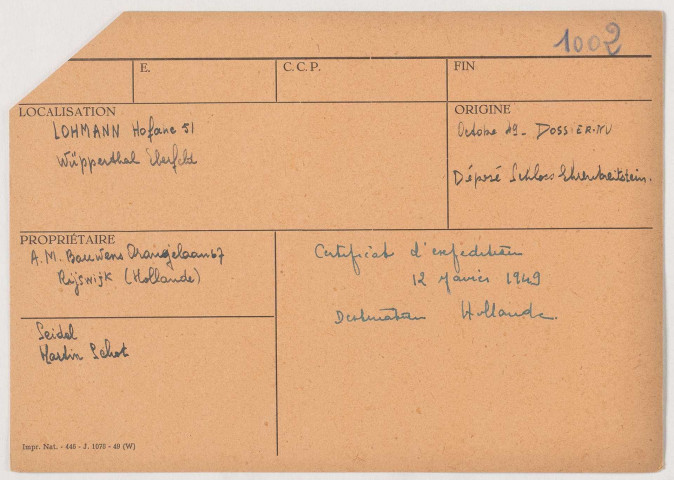 1002
E.
C.C.P.
FIN
LOCALISATION
LOHMANN Hofane 51
Wüpperthal Eberfeld
ORIGINE
Octobre 49 - DOSSIER-NU
Déposé Schloss Ehrenbreitstein.
PROPRIÉTAIRE
A.M. Bauwens Oranjelaan 67
Rijswijk (Hollande)
Certificat d'expédition
12 Janvier 1949
Destination Hollande.
Seidel
Martin Schot
Impr. Nat. - 446 - J. 1076 - 49 (W)